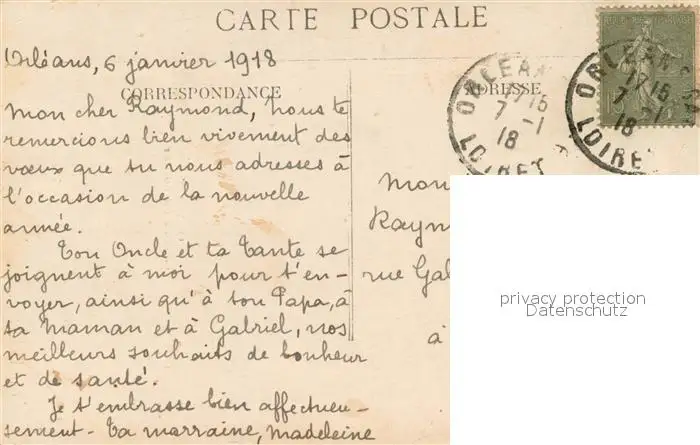 CARTE POSTALE
Orléans, 6 janvier 1918
CORRESPONDANCE
Mon cher Raymond, nous te
remercions bien vivement des
vœux que tu nous adresses à
l'occasion de la nouvelle
année.
Ton Oncle et ta Tante se
joignent à moi pour t'en-
voyer, ainsi qu'à ton Papa, à
ta Maman et à Gabriel, nos
meilleurs souhaits de bonheur
et de santé.
Je t'embrasse bien affectueu-
sement - Ta marraine, Madeleine
ADRESSE
ORLEANS
17 15
7 -1
18
LOIRET
ORLEANS
17 15
7 -1
18
LOIRET
Mon
Raym
rue Gal
à
privacy protection
Datenschutz